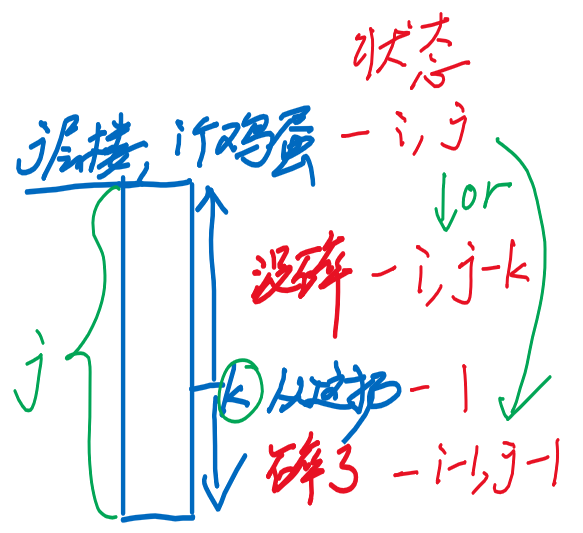 状态
j层楼, i个鸡蛋 - i, j
↓ or
没碎 - i, j-k
j
k 从这扔 - 1
碎了 - i-1, j-1